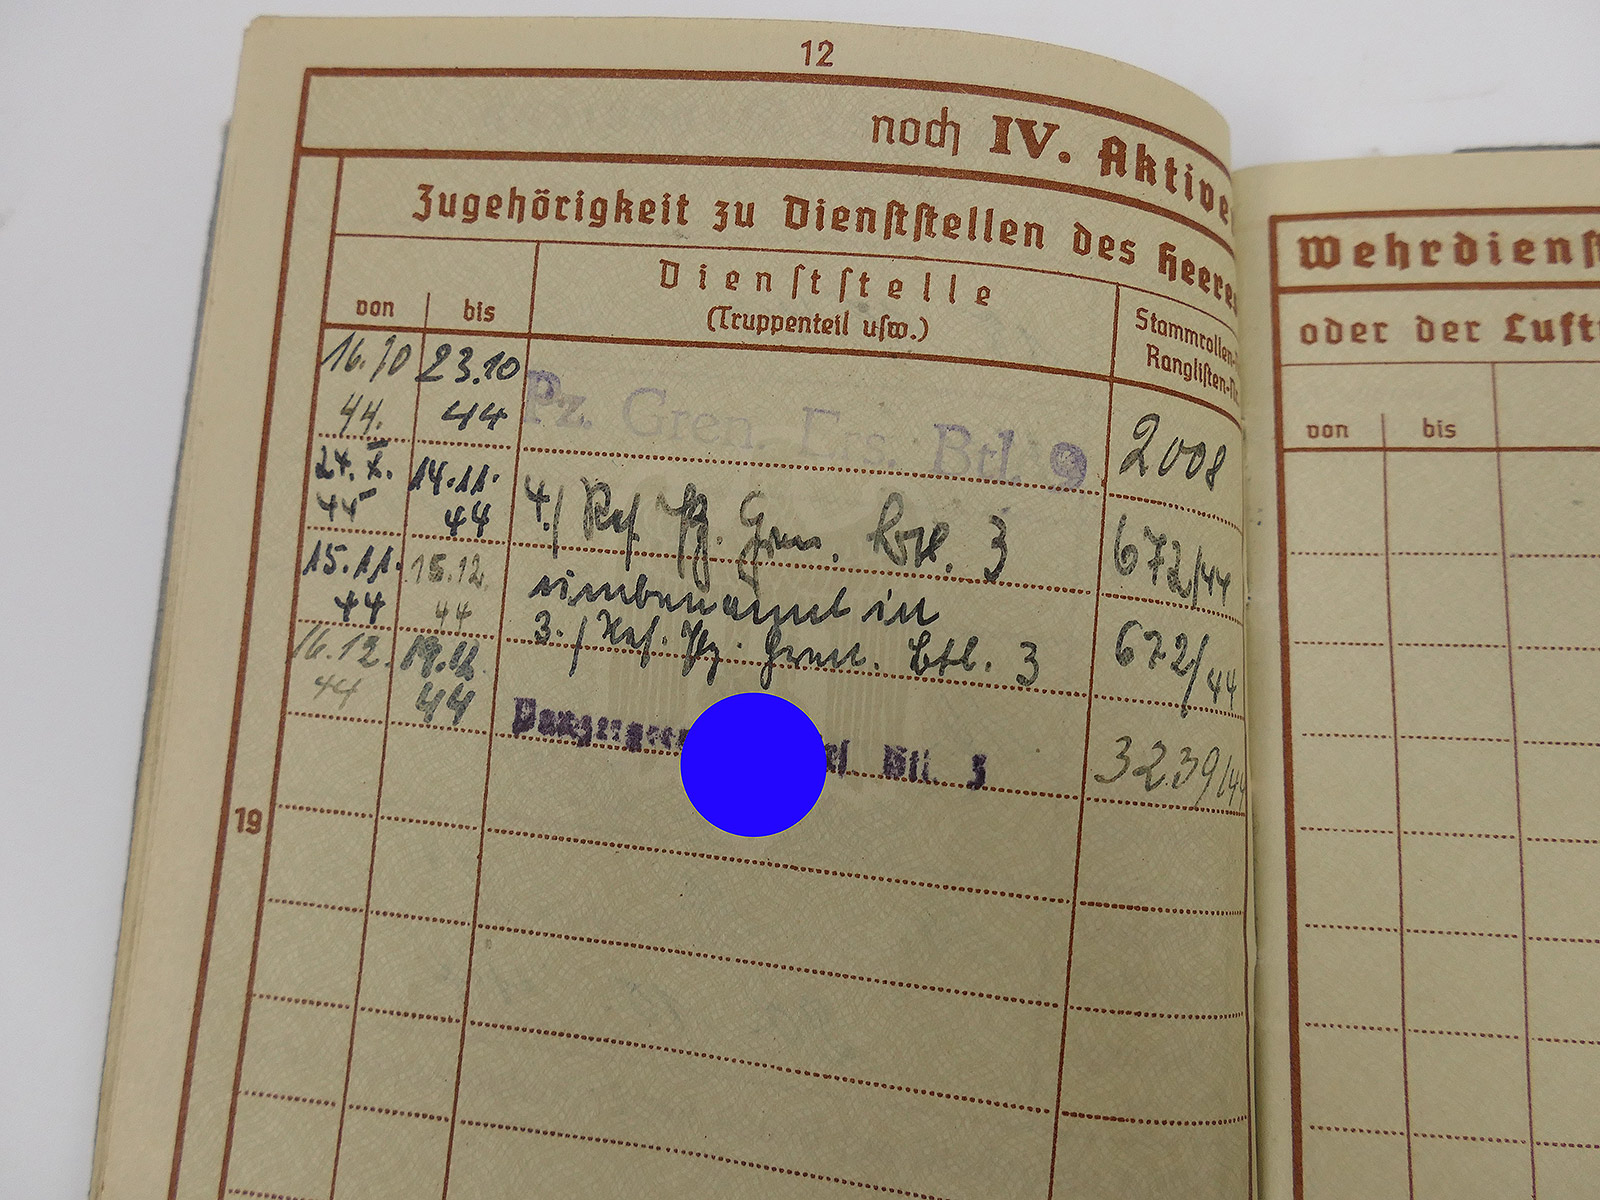 12
noch IV. Aktive
Zugehörigkeit zu Dienststellen des Heeres
von bis
Dienststelle
(Truppenteil usw.)
Stammrollen-
Ranglisten-Nr.
16.10 44. 23.10 44 Pz. Gren. Ers. Btl. 9 2008
24. X. 44 14.11. 44 4./ Res. Pz. Gren. Btl. 3 672/44
15.11. 44 15.12. 44 umbenannt in
3./ Res. Pz. Gren. Btl. 3 672/44
16.12. 44 19.12. 44 Btl. 3 3239/44
19
Wehrdienst
oder der Luft
von bis